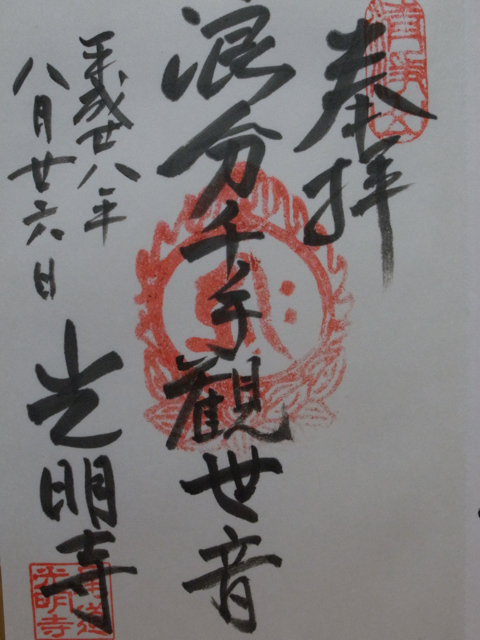 奉拝
浪分千手観世音
平成廿八年
八月廿六日
光明寺
尾道
光明寺